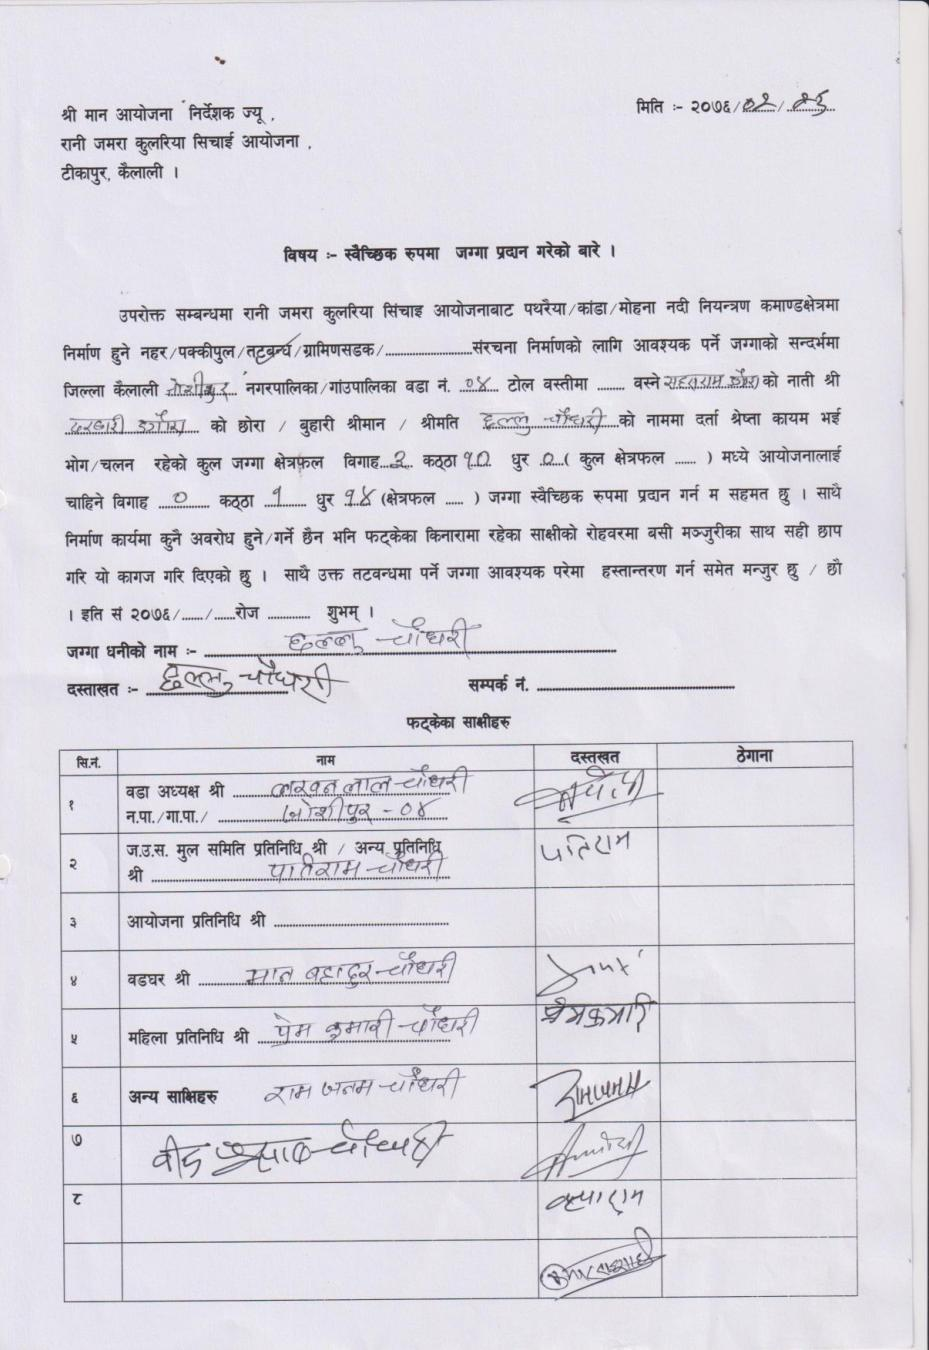 श्री मान आयोजना निर्देशक ज्यू ,
मिति :- २०७६/०२/२६
रानी जमरा कुलरिया सिचाई आयोजना ,
टीकापुर, कैलाली ।
विषय :- स्वैच्छिक रुपमा जग्गा प्रदान गरेको बारे ।
उपरोक्त सम्बन्धमा रानी जमरा कुलरिया सिंचाइ आयोजनाबाट पथरैया/कांडा/मोहना नदी नियन्त्रण कमाण्डक्षेत्रमा
निर्माण हुने नहर/पक्कीपुल/तटबन्ध/ग्रामिणसडक/........................संरचना निर्माणको लागि आवश्यक पर्ने जग्गाको सन्दर्भमा
जिल्ला कैलाली जोशीपुर नगरपालिका/गांउपालिका वडा नं. ०४ टोल वस्तीमा ........ वस्ने को नाती श्री
को छोरा / बुहारी श्रीमान / श्रीमति छल्लु चौधरी को नाममा दर्ता श्रेष्ता कायम भई
भोग/चलन रहेको कुल जग्गा क्षेत्रफल विगाह २ कठ्ठा १० धुर ० ( कुल क्षेत्रफल ...... ) मध्ये आयोजनालाई
चाहिने विगाह ० कठ्ठा १ धुर १४ (क्षेत्रफल ...... ) जग्गा स्वैच्छिक रुपमा प्रदान गर्न म सहमत छु । साथै
निर्माण कार्यमा कुनै अवरोध हुने/गर्ने छैन भनि फट्केका किनारामा रहेका साक्षीको रोहवरमा बसी मञ्जुरीका साथ सही छाप
गरि यो कागज गरि दिएको छु । साथै उक्त तटवन्धमा पर्ने जग्गा आवश्यक परेमा हस्तान्तरण गर्न समेत मन्जुर छु / छौ
। इति सं २०७६/....../......रोज ............ शुभम् ।
जग्गा धनीको नाम :- छल्लु चौधरी
दस्ताखत :- छल्लु चौधरी सम्पर्क नं. ........................
फट्केका साक्षीहरु
सि.नं. नाम दस्तखत ठेगाना
१ वडा अध्यक्ष श्री लखन लाल चौधरी
न.पा./गा.पा./ जोशीपुर - ०४
२ ज.उ.स. मुल समिति प्रतिनिधि श्री / अन्य प्रतिनिधि पतिराम
श्री पातिराम चौधरी
३ आयोजना प्रतिनिधि श्री ........................
४ वडघर श्री मान बहादुर चौधरी
५ महिला प्रतिनिधि श्री प्रेम कुमारी चौधरी प्रेमकुमारी
६ अन्य साक्षिहरु राम जनम चौधरी रामजनम
७ चौधरी
८